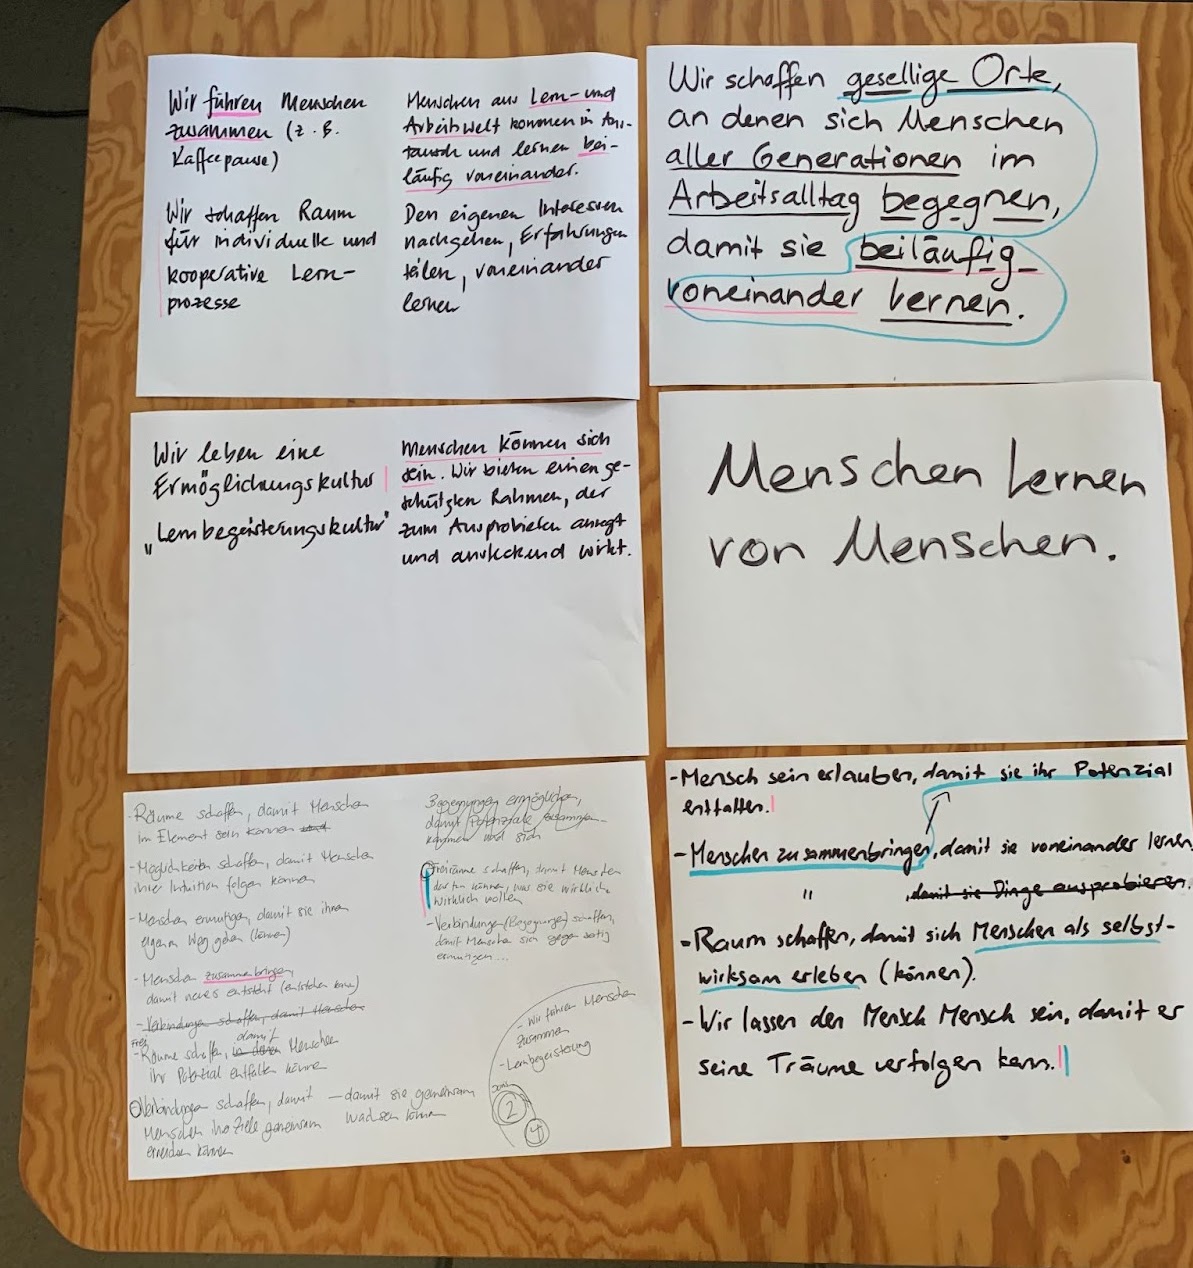 Wir führen Menschen
zusammen (z.B.
Kaffeepause)
Wir schaffen Raum
für individuelle und
kooperative Lern-
prozesse
Menschen aus Lern- und
Arbeitswelt kommen in Aus-
tausch und lernen bei-
läufig voneinander.
Den eigenen Interessen
nachgehen, Erfahrungen
teilen, voneinander
lernen
Wir schaffen gesellige Orte,
an denen sich Menschen
aller Generationen im
Arbeitsalltag begegnen,
damit sie beiläufig
voneinander lernen.
Wir leben eine
Ermöglichungskultur
"Lernbegeisterungskultur"
Menschen können sich
sein. Wir bieten einen ge-
schützten Rahmen, der
zum Ausprobieren anregt
und ansteckend wirkt.
Menschen lernen
von Menschen.
- Räume schaffen, damit Menschen
im Element sein können und
- Möglichkeiten schaffen, damit Menschen
ihrer Intuition folgen können
- Menschen ermutigen, damit sie ihren
eigenen Weg gehen (können)
- Menschen zusammenbringen,
damit neues entsteht (entstehen kann)
- Verbindungen schaffen, damit Menschen
Frei
damit
- Räume schaffen, in denen Menschen
ihr Potenzial entfalten können
Verbindungen schaffen, damit
Menschen ihre Ziele gemeinsam
erreichen können
- damit sie gemeinsam
wachsen können
Begegnungen ermöglichen,
damit Potenziale zusammen-
kommen und sich
Freiräume schaffen, damit Menschen
das tun können, was sie wirklich
wirklich wollen
- Verbindungen (Begegnungen) schaffen,
damit Menschen sich gegenseitig
ermutigen...
- Wir führen Menschen
zusammen
- Lernbegeisterung
2
4
- Mensch sein erlauben, damit sie ihr Potenzial
entfalten.
- Menschen zusammenbringen, damit sie voneinander lernen.
" , damit sie Dinge ausprobieren.
- Raum schaffen, damit sich Menschen als selbst-
wirksam erleben (können).
- Wir lassen den Mensch Mensch sein, damit er
seine Träume verfolgen kann.